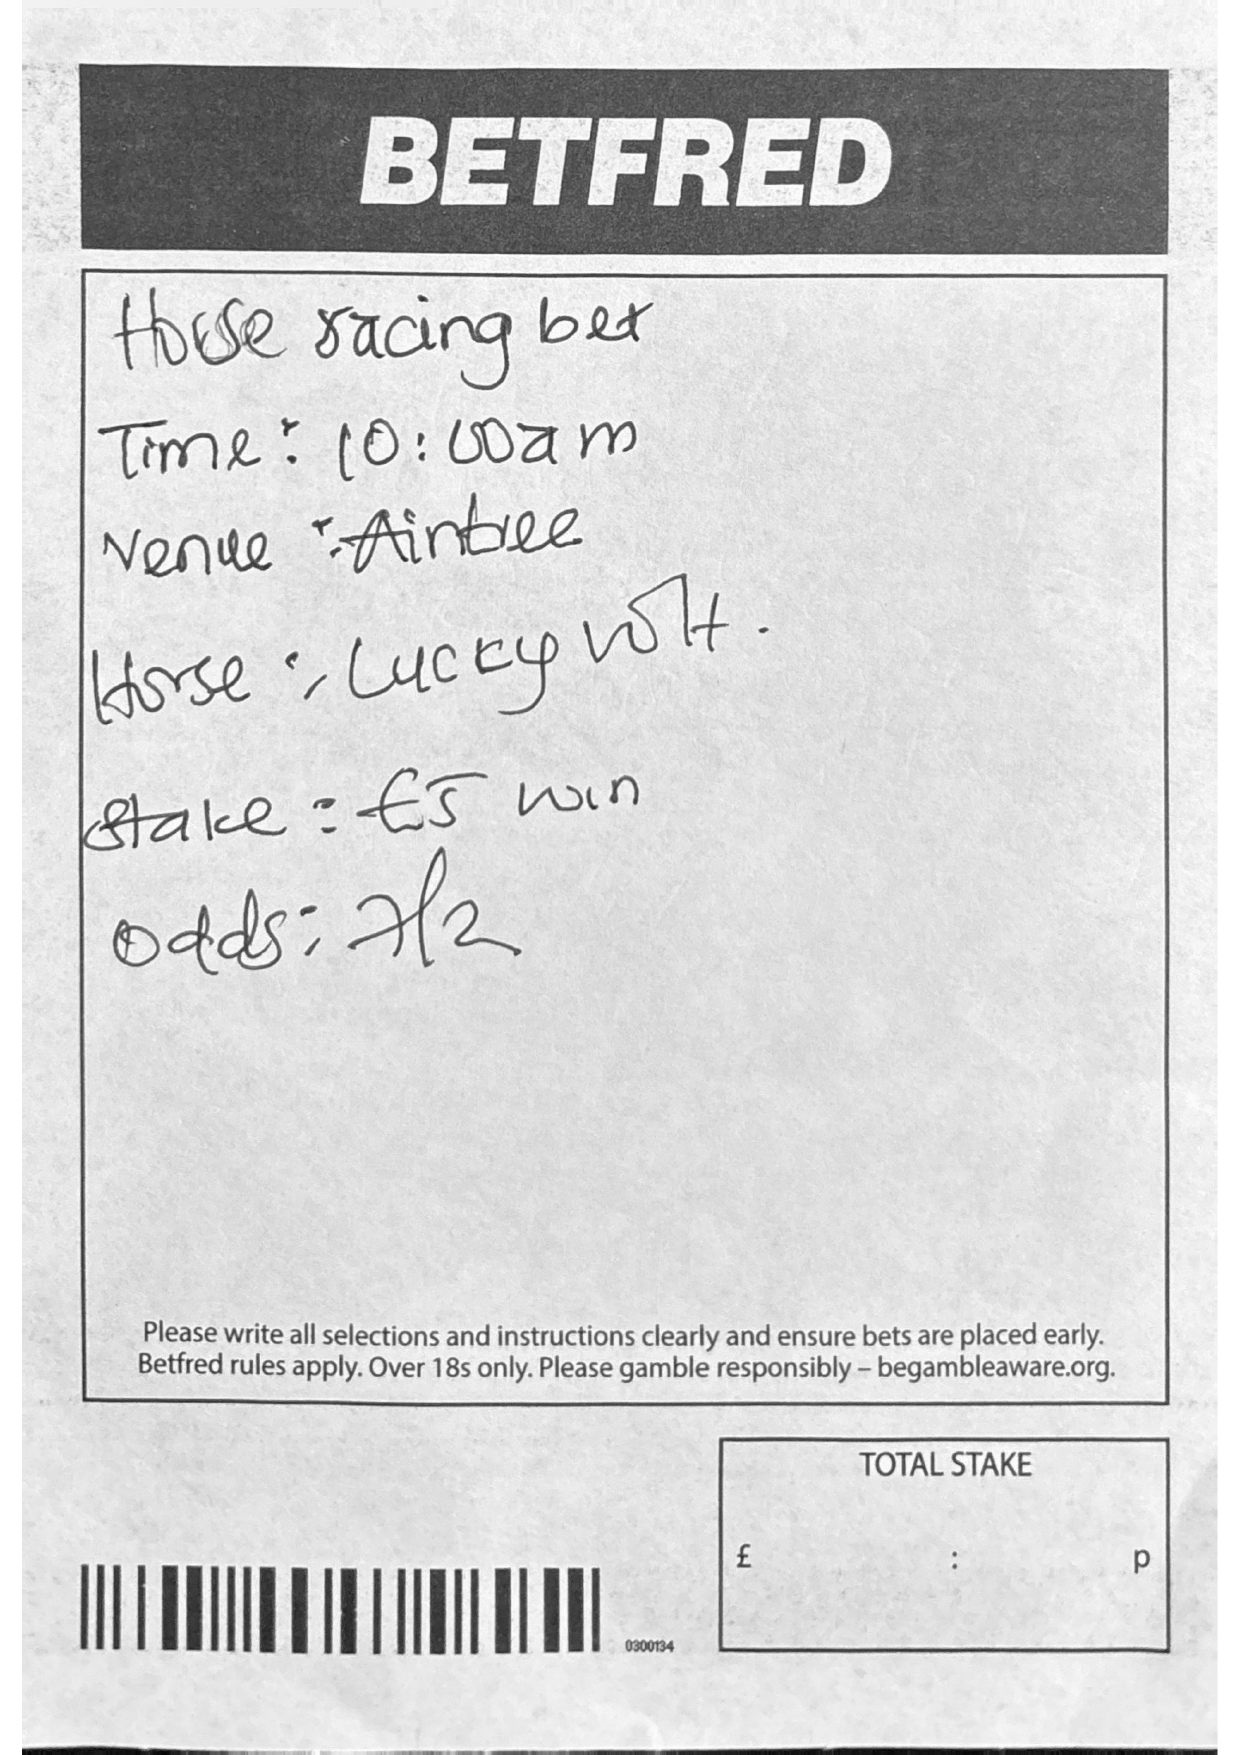 BETFRED
Horse racing bet
Time: 10:00am
Venue: Aintree
Horse: Lucky Volt.
Stake: £5 win
Odds: 7/2
Please write all selections and instructions clearly and ensure bets are placed early.
Betfred rules apply. Over 18s only. Please gamble responsibly – begambleaware.org.
TOTAL STAKE
£ : p
0300134